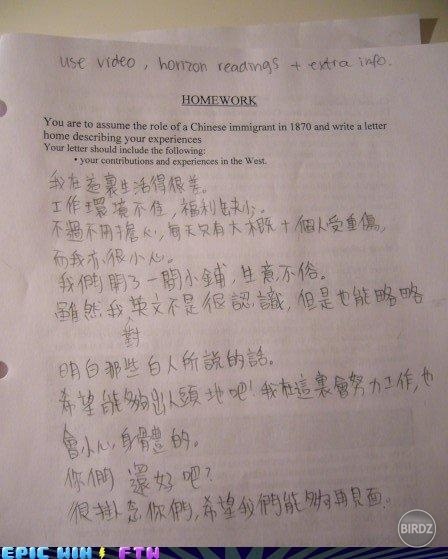 use video, horizon readings + extra info.
HOMEWORK
You are to assume the role of a Chinese immigrant in 1870 and write a letter
home describing your experiences
Your letter should include the following:
• your contributions and experiences in the West.
我在這裏生活得很差。
工作環境不佳，福利缺少。
不過不用擔心，每天只有大概十個人受重傷，
而我亦很小心。
我們開了一間小鋪，生意不俗。
雖然我對英文不是很認識，但是也能略略
明白那些白人所說的話。
希望能夠出人頭地吧！我在這裏會努力工作，也
會小心身體的。
你們還好吧？
很掛念你們，希望我們能夠再見面。
BIRDZ
EPIC WIN FTW